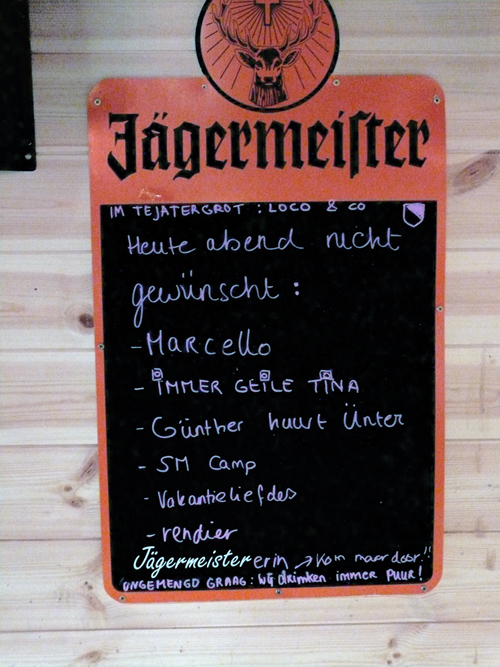 Jägermeiſter
IM TEJATERGROT : LOCO & CO
Heute abend nicht
gewünscht :
- Marcello
- IMMER GEILE TINA
- Günther huurt Ünter
- SM Camp
- Vakantieliefdes
- rendier
Jägermeistererin → Kom maar door!!
ONGEMENGD GRAAG: WIJ drinken immer PUUR!